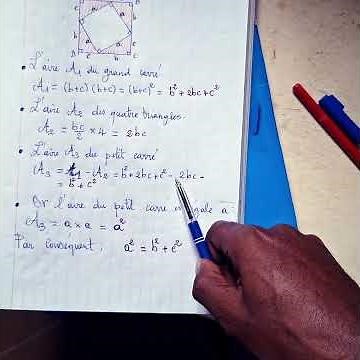 • L'aire A₁ du grand carré
A₁ = (b+c)(b+c) = (b+c)² = b² + 2bc + c²
• L'aire A₂ des quatre triangles.
A₂ = bc/2 × 4 = 2bc
• L'aire A₃ du petit carré
A₃ = A₁ - A₂ = b² + 2bc + c² - 2bc -
= b² + c²
• Or l'aire du petit carré égale a²
A₃ = a × a = a²
Par conséquent, a² = b² + c²